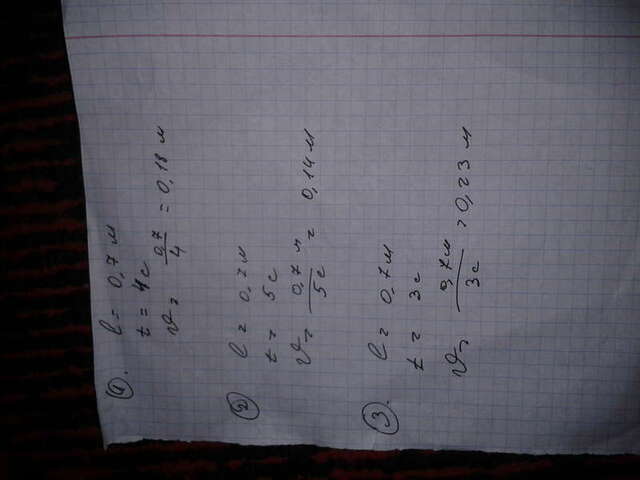 1. l = 0,7 м
t = 4 с
υ = 0,7/4 = 0,18 м
2 l = 0,7 м
t = 5 с
υ = 0,7 м/5 с = 0,14 м
3. l = 0,7 м
t = 3 с
υ = 0,7 м/3 с = 0,23 м